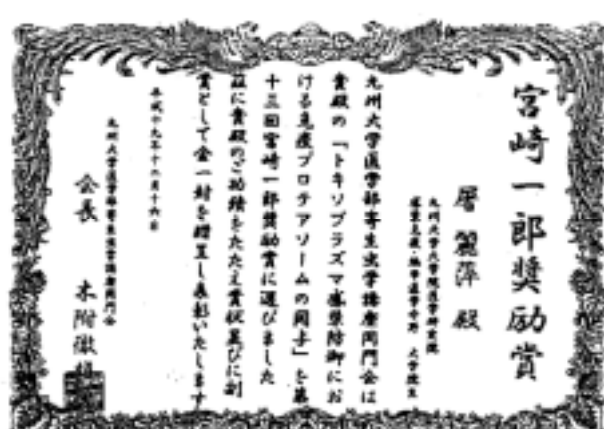 宮崎一郎奨励賞
屠 麗萍 殿
九州大学大学院医学研究院
感染免疫・熱帯医学分野 大学院生
九州大学医学部寄生虫学講座同門会は
貴殿の「トキソプラズマ感染防御にお
ける免疫プロテアソームの関与」を第
十三回宮崎一郎奨励賞に選びました
茲に貴殿のご功績をたたえ賞状並びに副
賞として金一封を贈呈し表彰いたします
平成十九年十二月十六日
九州大学医学部寄生虫学講座同門会
会長 木附